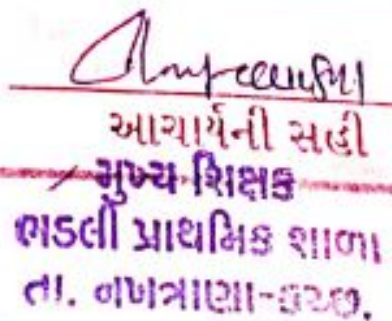 આચાર્યની સહી
મુખ્ય શિક્ષક
ભડલી પ્રાથમિક શાળા
તા. નખત્રાણા-કચ્છ.